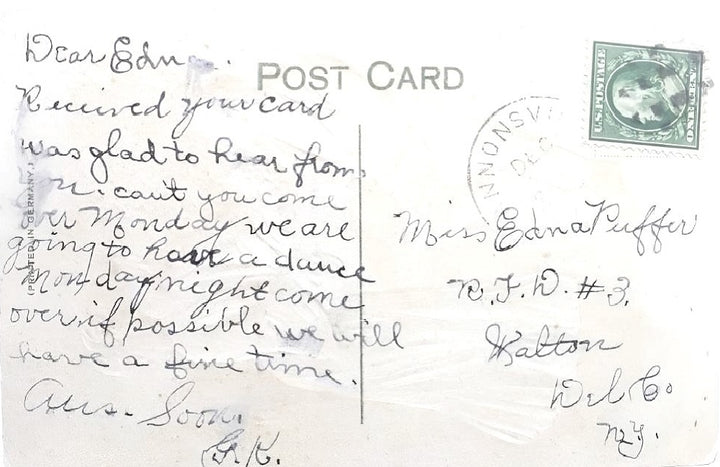 Dear Edna.
POST CARD
Received your card
was glad to hear from
you. can't you come
over Monday we are
going to have a dance
Monday night come
over if possible we will
have a fine time.
Ans. Soon.
G.K.
(PRINTED IN GERMANY.)
U.S. POSTAGE
ONE CENT
NNONSVI
DEC
Miss Edna Puffer
R.F.D. #3.
Walton
Del Co
N.Y.